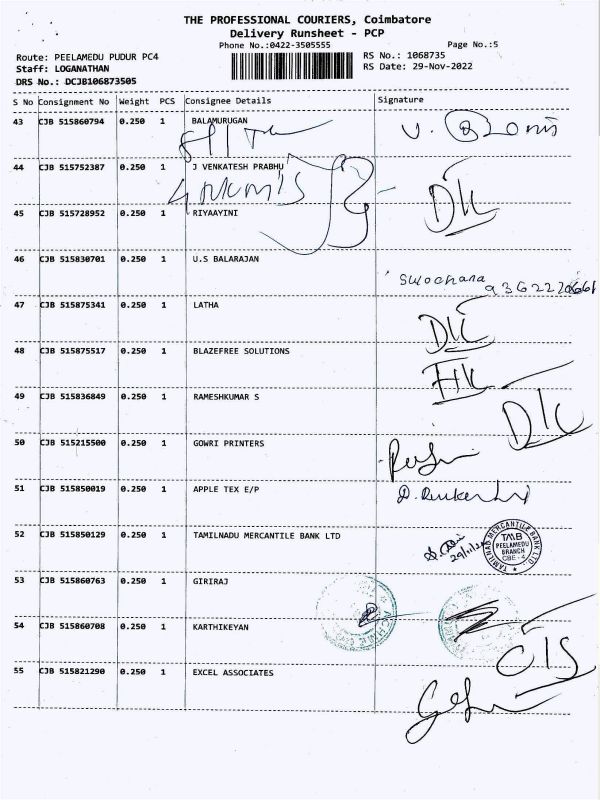 THE PROFESSIONAL COURIERS, Coimbatore
Delivery Runsheet - PCP
Phone No.:0422-3505555
Page No.:5
Route: PEELAMEDU PUDUR PC4
RS No.: 1068735
Staff: LOGANATHAN
RS Date: 29-Nov-2022
DRS No.: DCJB106873505
S No Consignment No Weight PCS Consignee Details Signature
43 CJB 515860794 0.250 1 BALAMURUGAN
44 CJB 515752387 0.250 1 J VENKATESH PRABHU
45 CJB 515728952 0.250 1 RIYAAYINI
46 CJB 515830701 0.250 1 U.S BALARAJAN
47 CJB 515875341 0.250 1 LATHA
48 CJB 515875517 0.250 1 BLAZEFREE SOLUTIONS
49 CJB 515836849 0.250 1 RAMESHKUMAR S
50 CJB 515215500 0.250 1 GOWRI PRINTERS
51 CJB 515850019 0.250 1 APPLE TEX E/P
52 CJB 515850129 0.250 1 TAMILNADU MERCANTILE BANK LTD
TAMILNAD MERCANTILE BANK LTD.
TMB
PEELAMEDU
BRANCH
CBE - 4
53 CJB 515860763 0.250 1 GIRIRAJ
54 CJB 515860708 0.250 1 KARTHIKEYAN
55 CJB 515821290 0.250 1 EXCEL ASSOCIATES